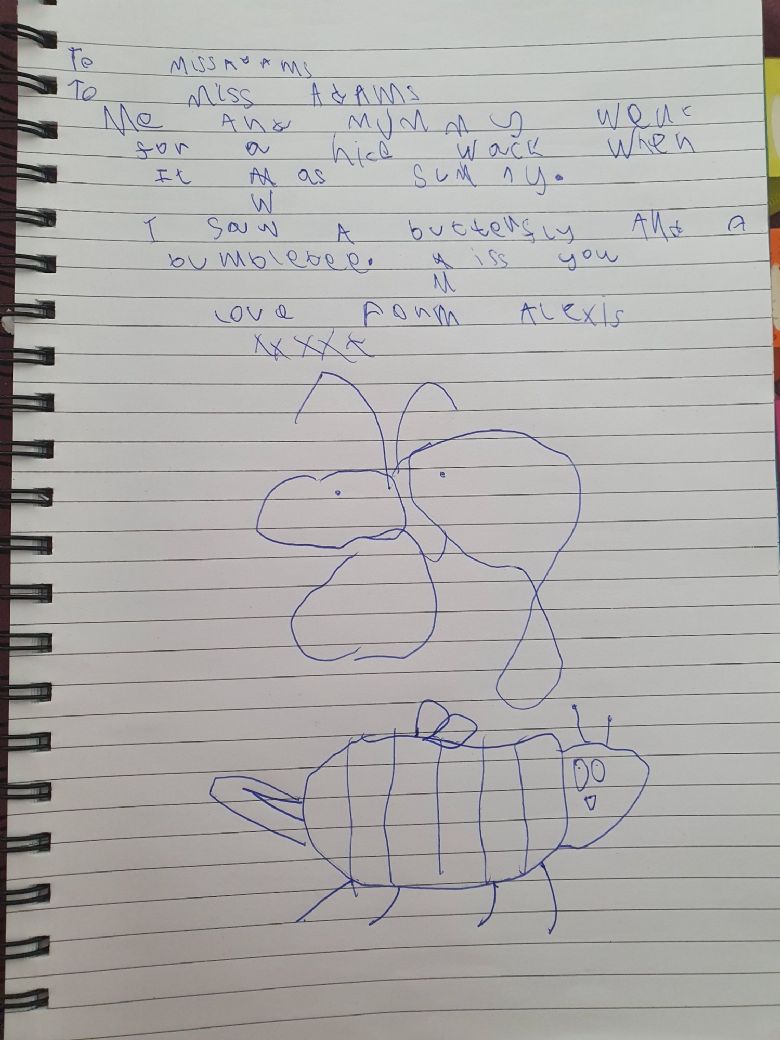 Te MissAdAMs
To Miss AdAMs
Me And MyMMy Went
for a nice wack when
It M as sunny.
W
I saw A butterfly And A
bumblebee. M iss you
M
Love Form ALexis
xx xxx